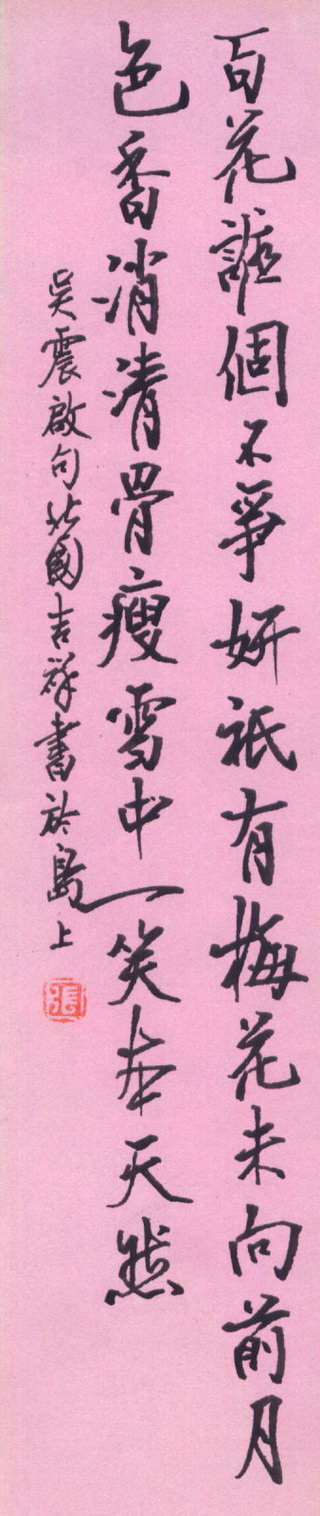 百花誰個不爭妍祇有梅花未向前月
色香消清骨瘦雪中一笑本天然
吳震啟句北國吉祥書於島上
張